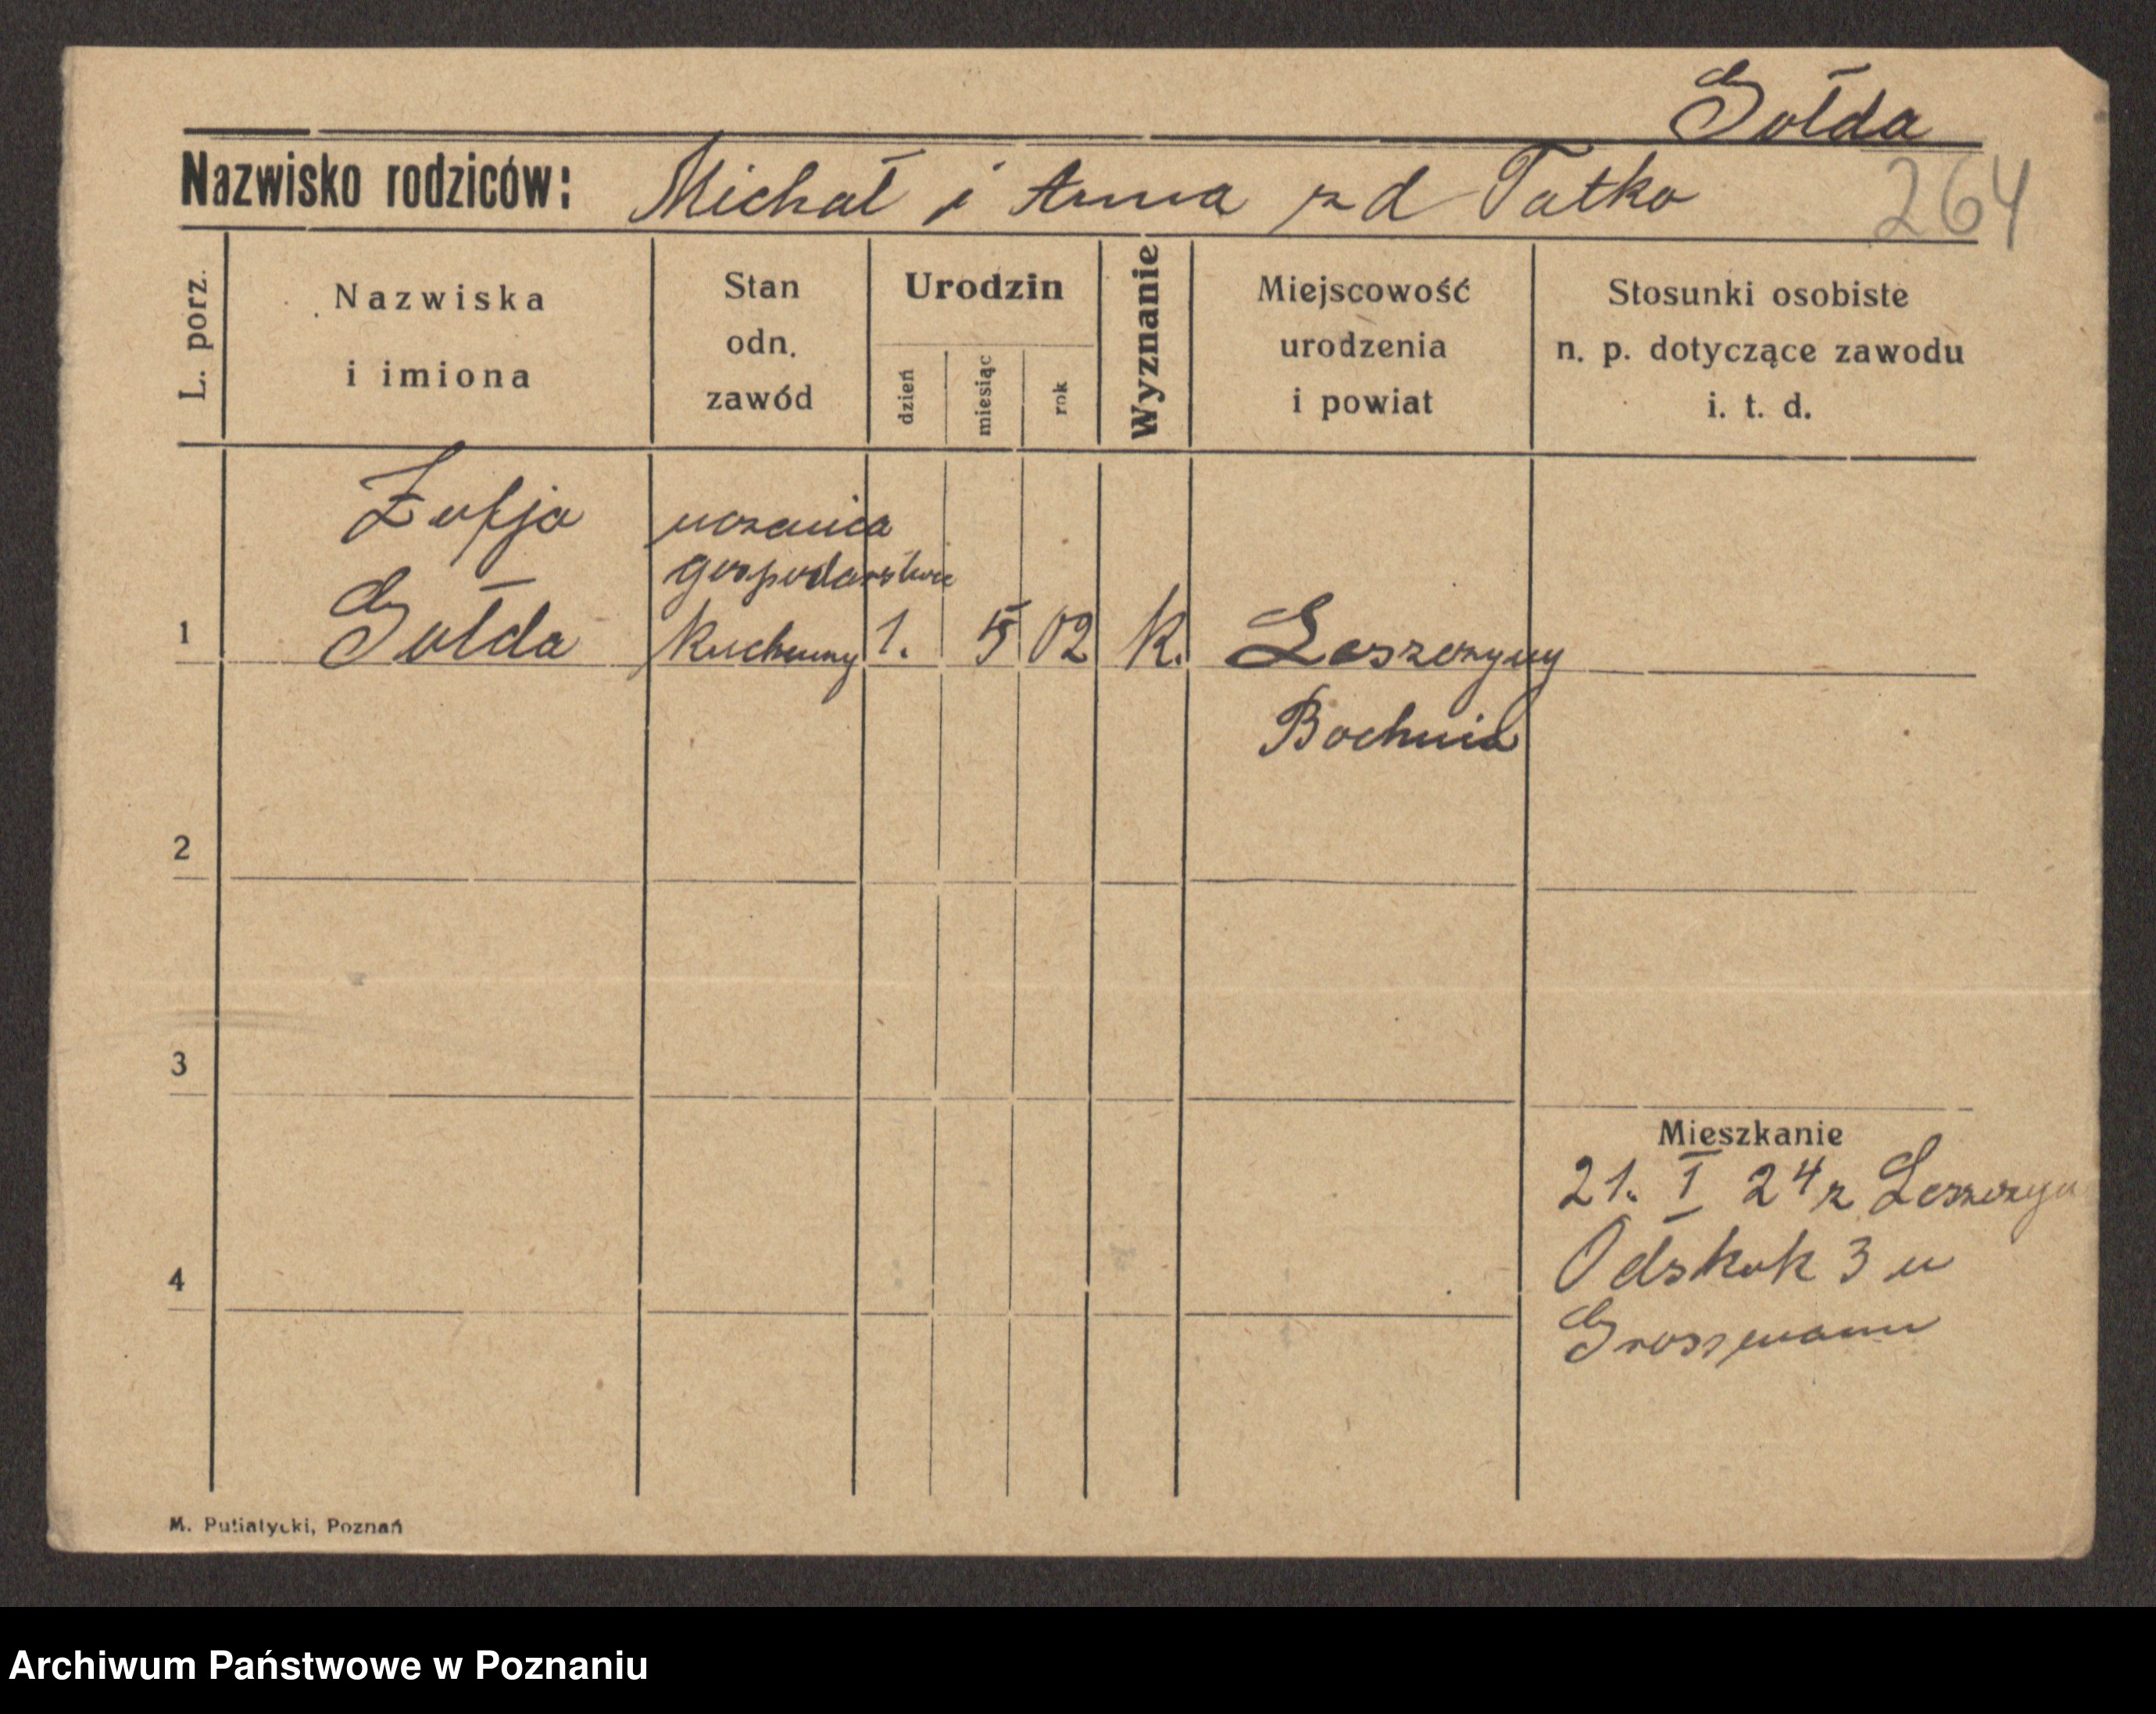 Gołda
Nazwisko rodziców: Michał i Anna zd Tatko
264
L. porz.
Nazwiska
i imiona
Stan
odn.
zawód
Urodzin
dzień
miesiąc
rok
Wyznanie
Miejscowość
urodzenia
i powiat
Stosunki osobiste
n. p. dotyczące zawodu
i. t. d.
Zofja
Gołda
uczenica
gospodarstwa
kuchenny
1
1. 5 02 k. Leszczyny
Bochnia
2
3
4
Mieszkanie
21. I 24 z Leszczyn
Odskok 3 u
Grossmann
M. Putiatycki, Poznań
Archiwum Państwowe w Poznaniu